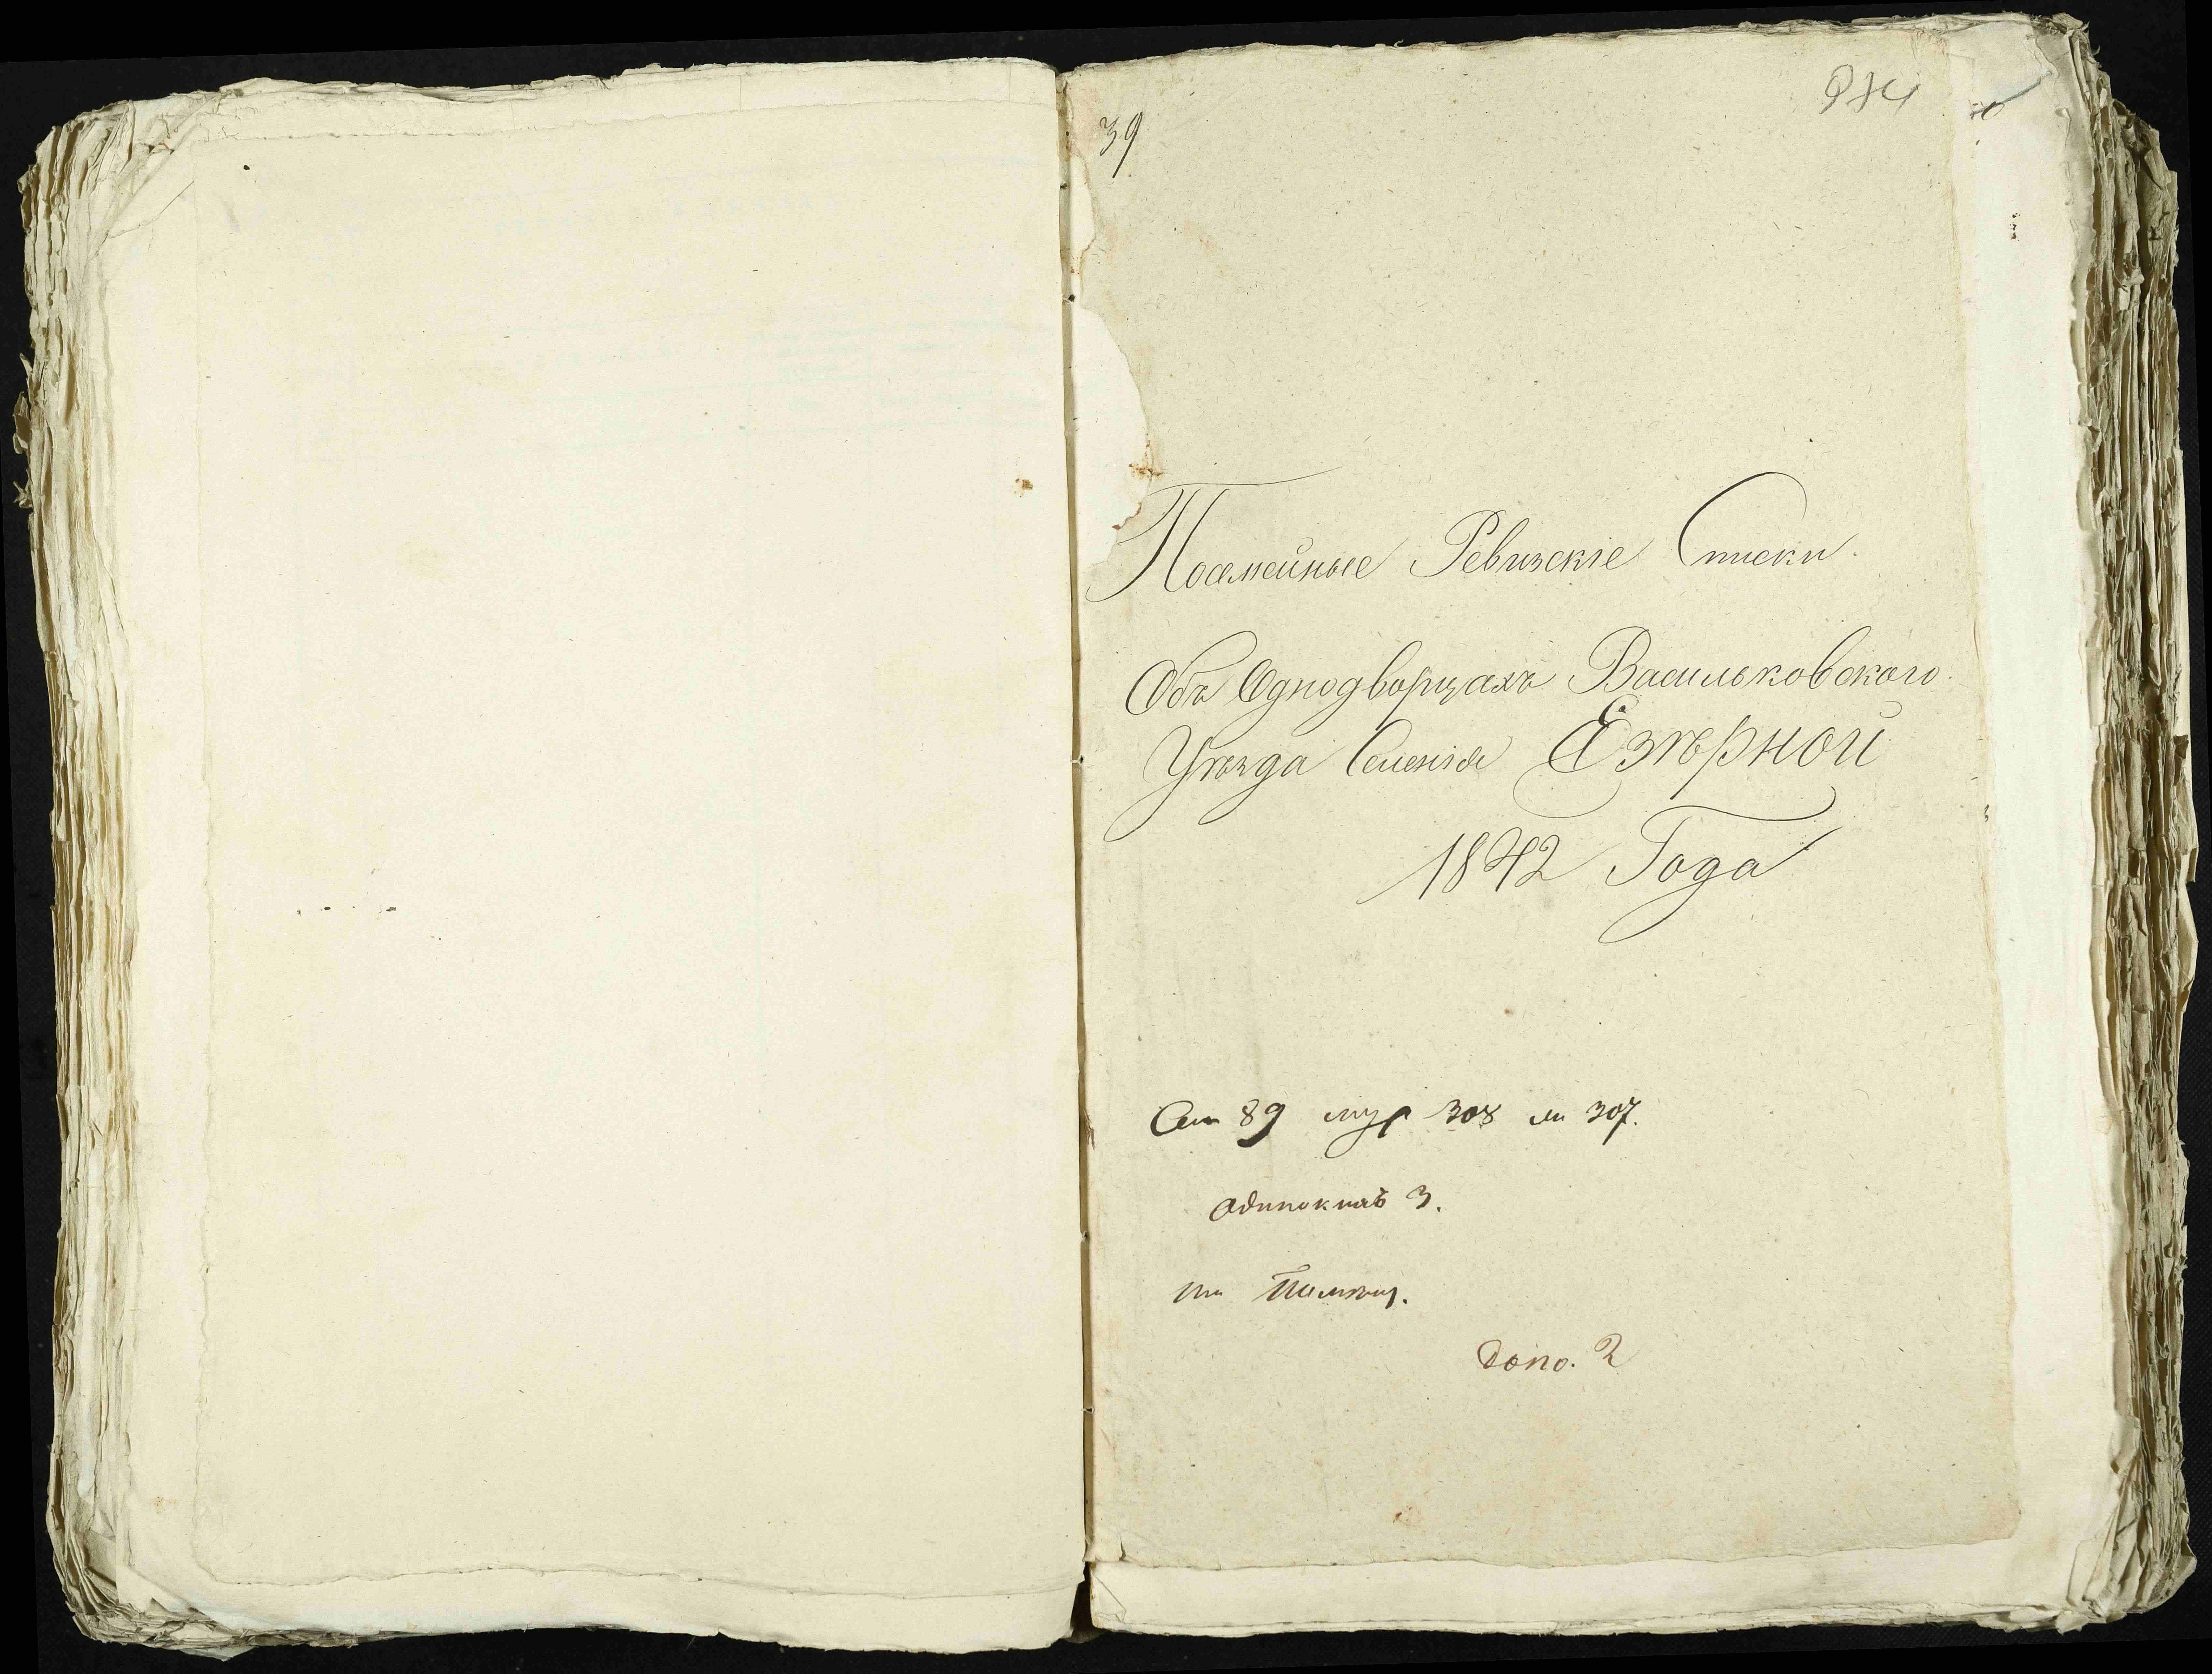 39
Посемейные Ревизскіе Списки.
Объ Однодворцахъ Васильковского
Уѣзда Селенія Езѣрной
1842 Года
Сем 89 муж 308 жн 307.
одинокихъ 3.
допо. 2